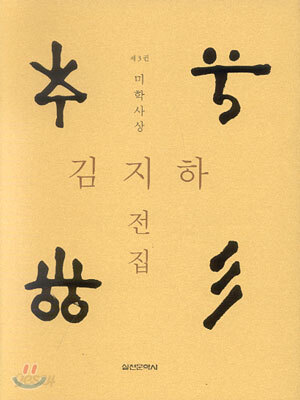 제3권
미학사상
김지하
전집
실천문학사